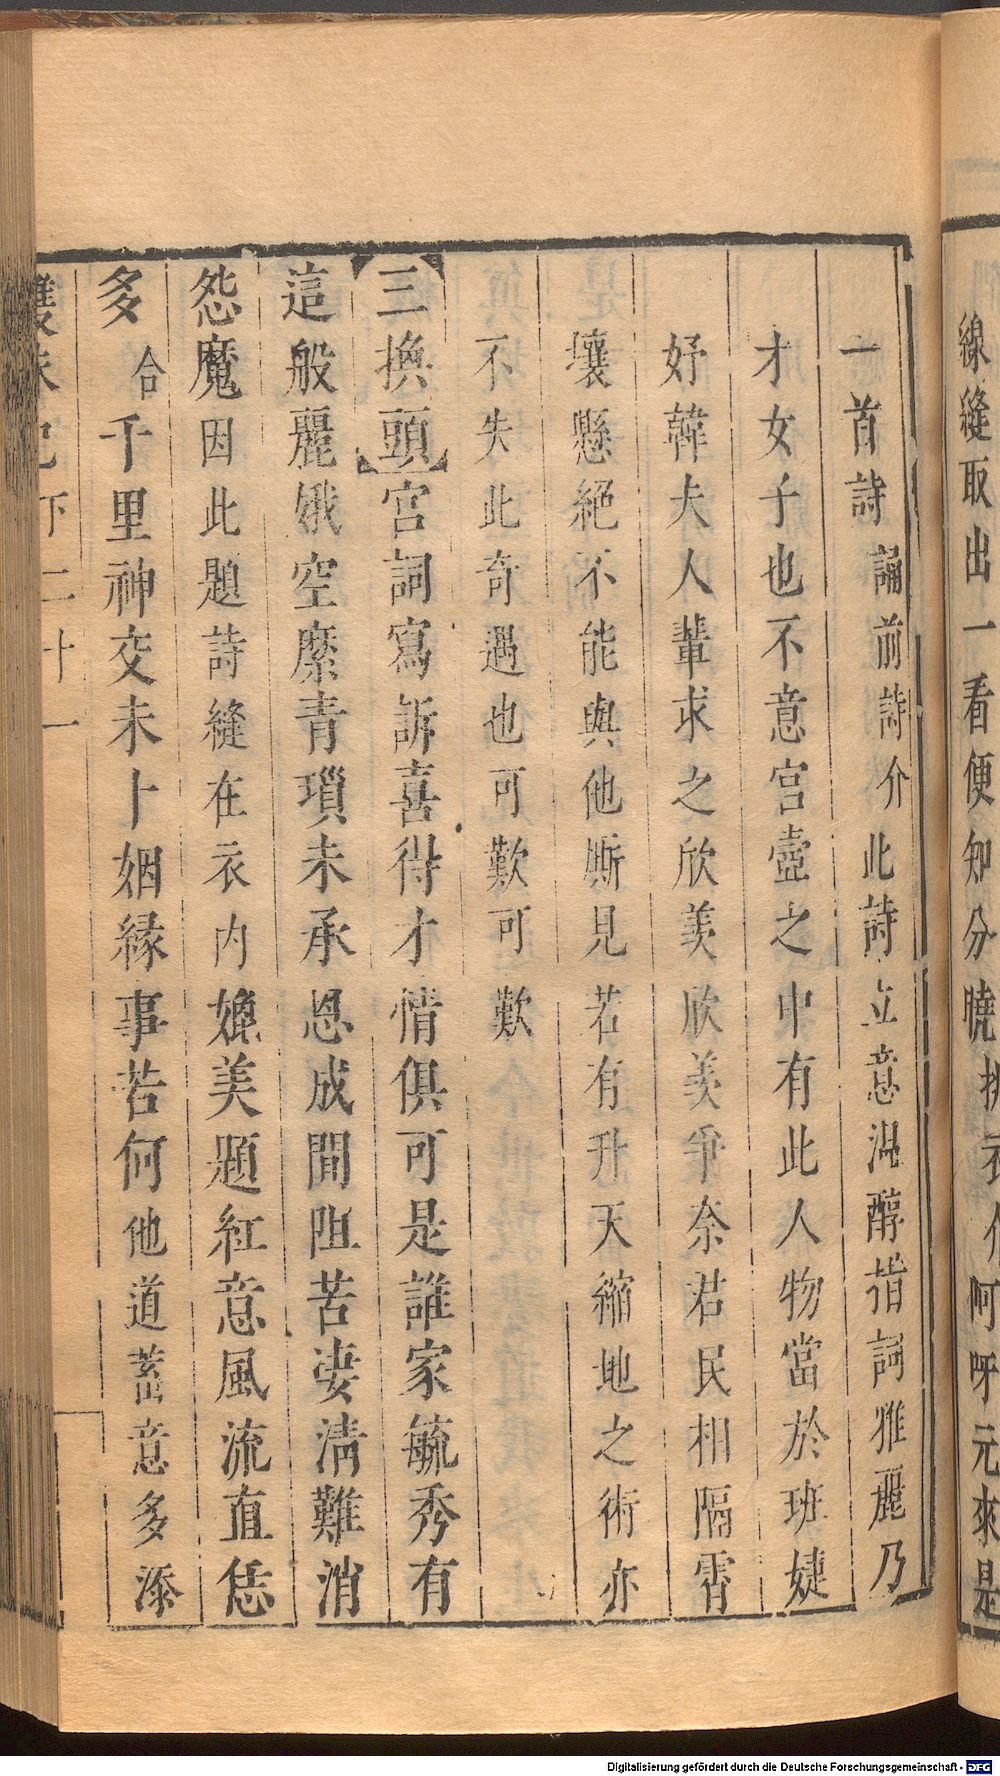 線縫取出一看便知分曉
阿呀元來是
一首詩誦前詩介此詩立意渾醇措詞雅麗乃
才女子也不意宮壼之中有此人物當於班婕
妤韓夫人輩求之欣羨欣羨爭奈君民相隔霄
壤懸絕不能與他厮見若有升天縮地之術亦
不失此奇遇也可歎可歎
三換頭宮詞寫訴喜得才情俱可是誰家毓秀有
這般麗娥空縻青瑣未承恩成間阻苦淒清難消
怨魔因此題詩縫在衣內媲美題紅意風流直恁
多合千里神交未卜姻緣事若何他道蓄意多添
下二十一
Digitalisierung gefördert durch die Deutsche Forschungsgemeinschaft - DFG